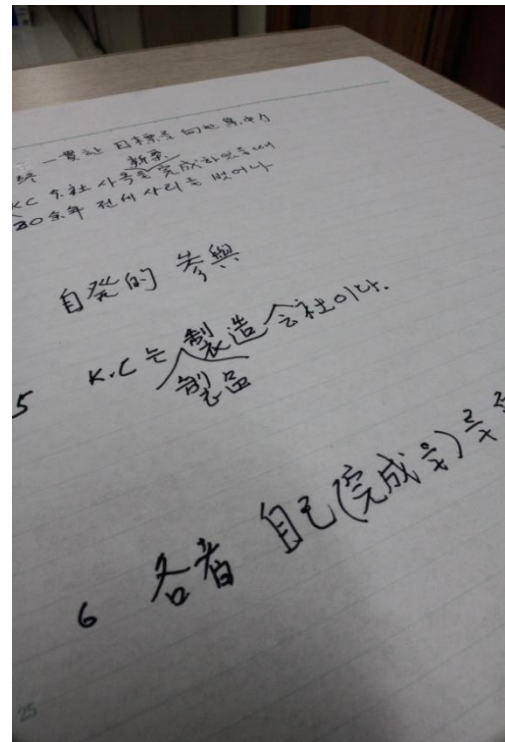 一貫한 目標를 向한 努力
新築
KC 会社 사옥을 完成하였을때
20余年 전세 사리를 벗어나
自発的 参與
5 K.C는 製造 会社이다.
製品
6 各者 自己(完成
25